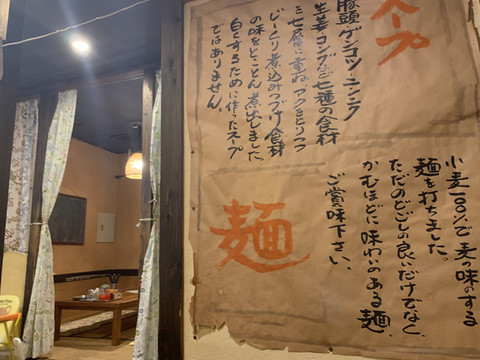 スープ
豚頭ゲンコツ・ニンニク
生姜コンブなど七種の食材
を七層に重ねアクをとりつつ
じーっくり煮込みつづけ食材
の味をとことん煮出しました。
白とするために作ったスープ
ではありません。
麺
小麦100%で麦の味のする
麺を打ちました。
ただのどごしの良いだけでなく、
かむほどに味わいのある麺、
ご賞味下さい。